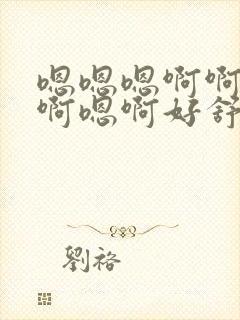 嗯嗯嗯啊啊
啊嗯啊好舒
劉裕